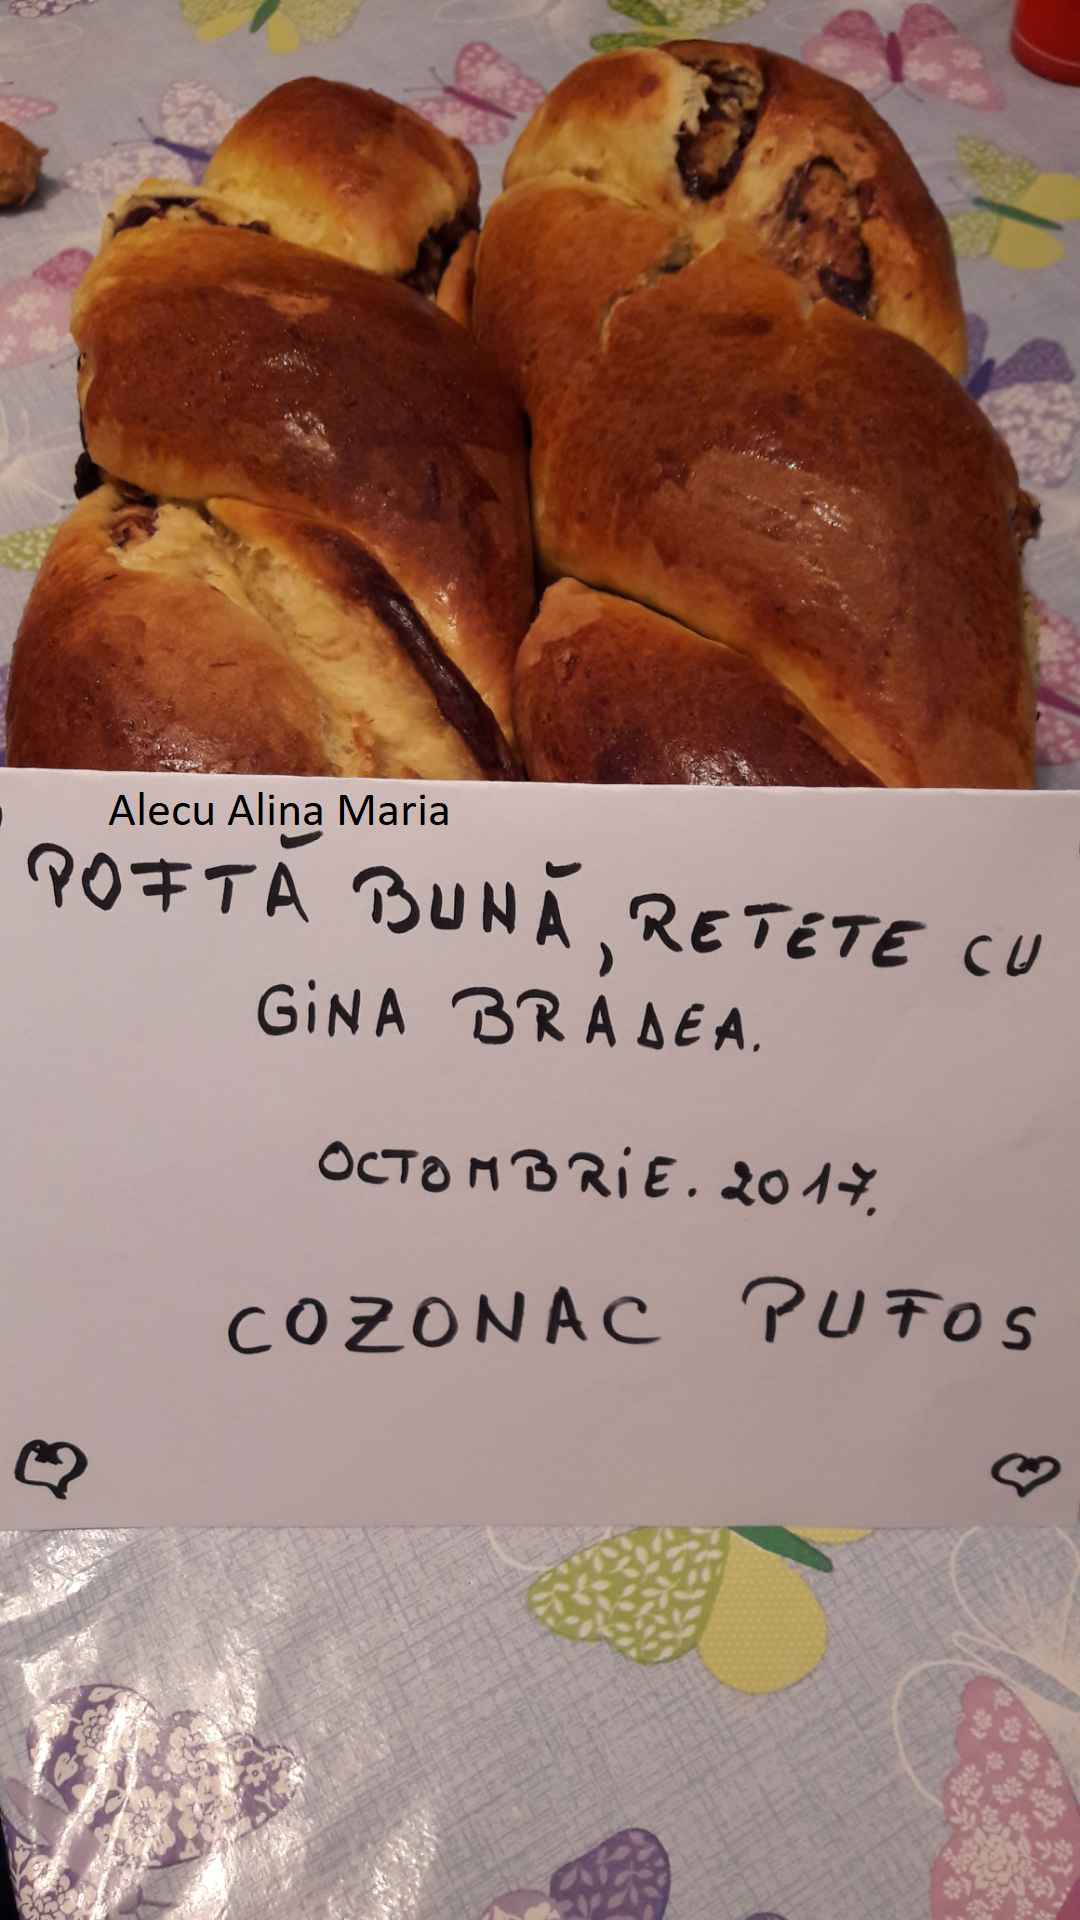 Alecu Alina Maria
POFTĂ BUNĂ, RETETE CU
GiNA BRADEA.
OCTOMBRiE. 2017.
COZONAC PUFOS